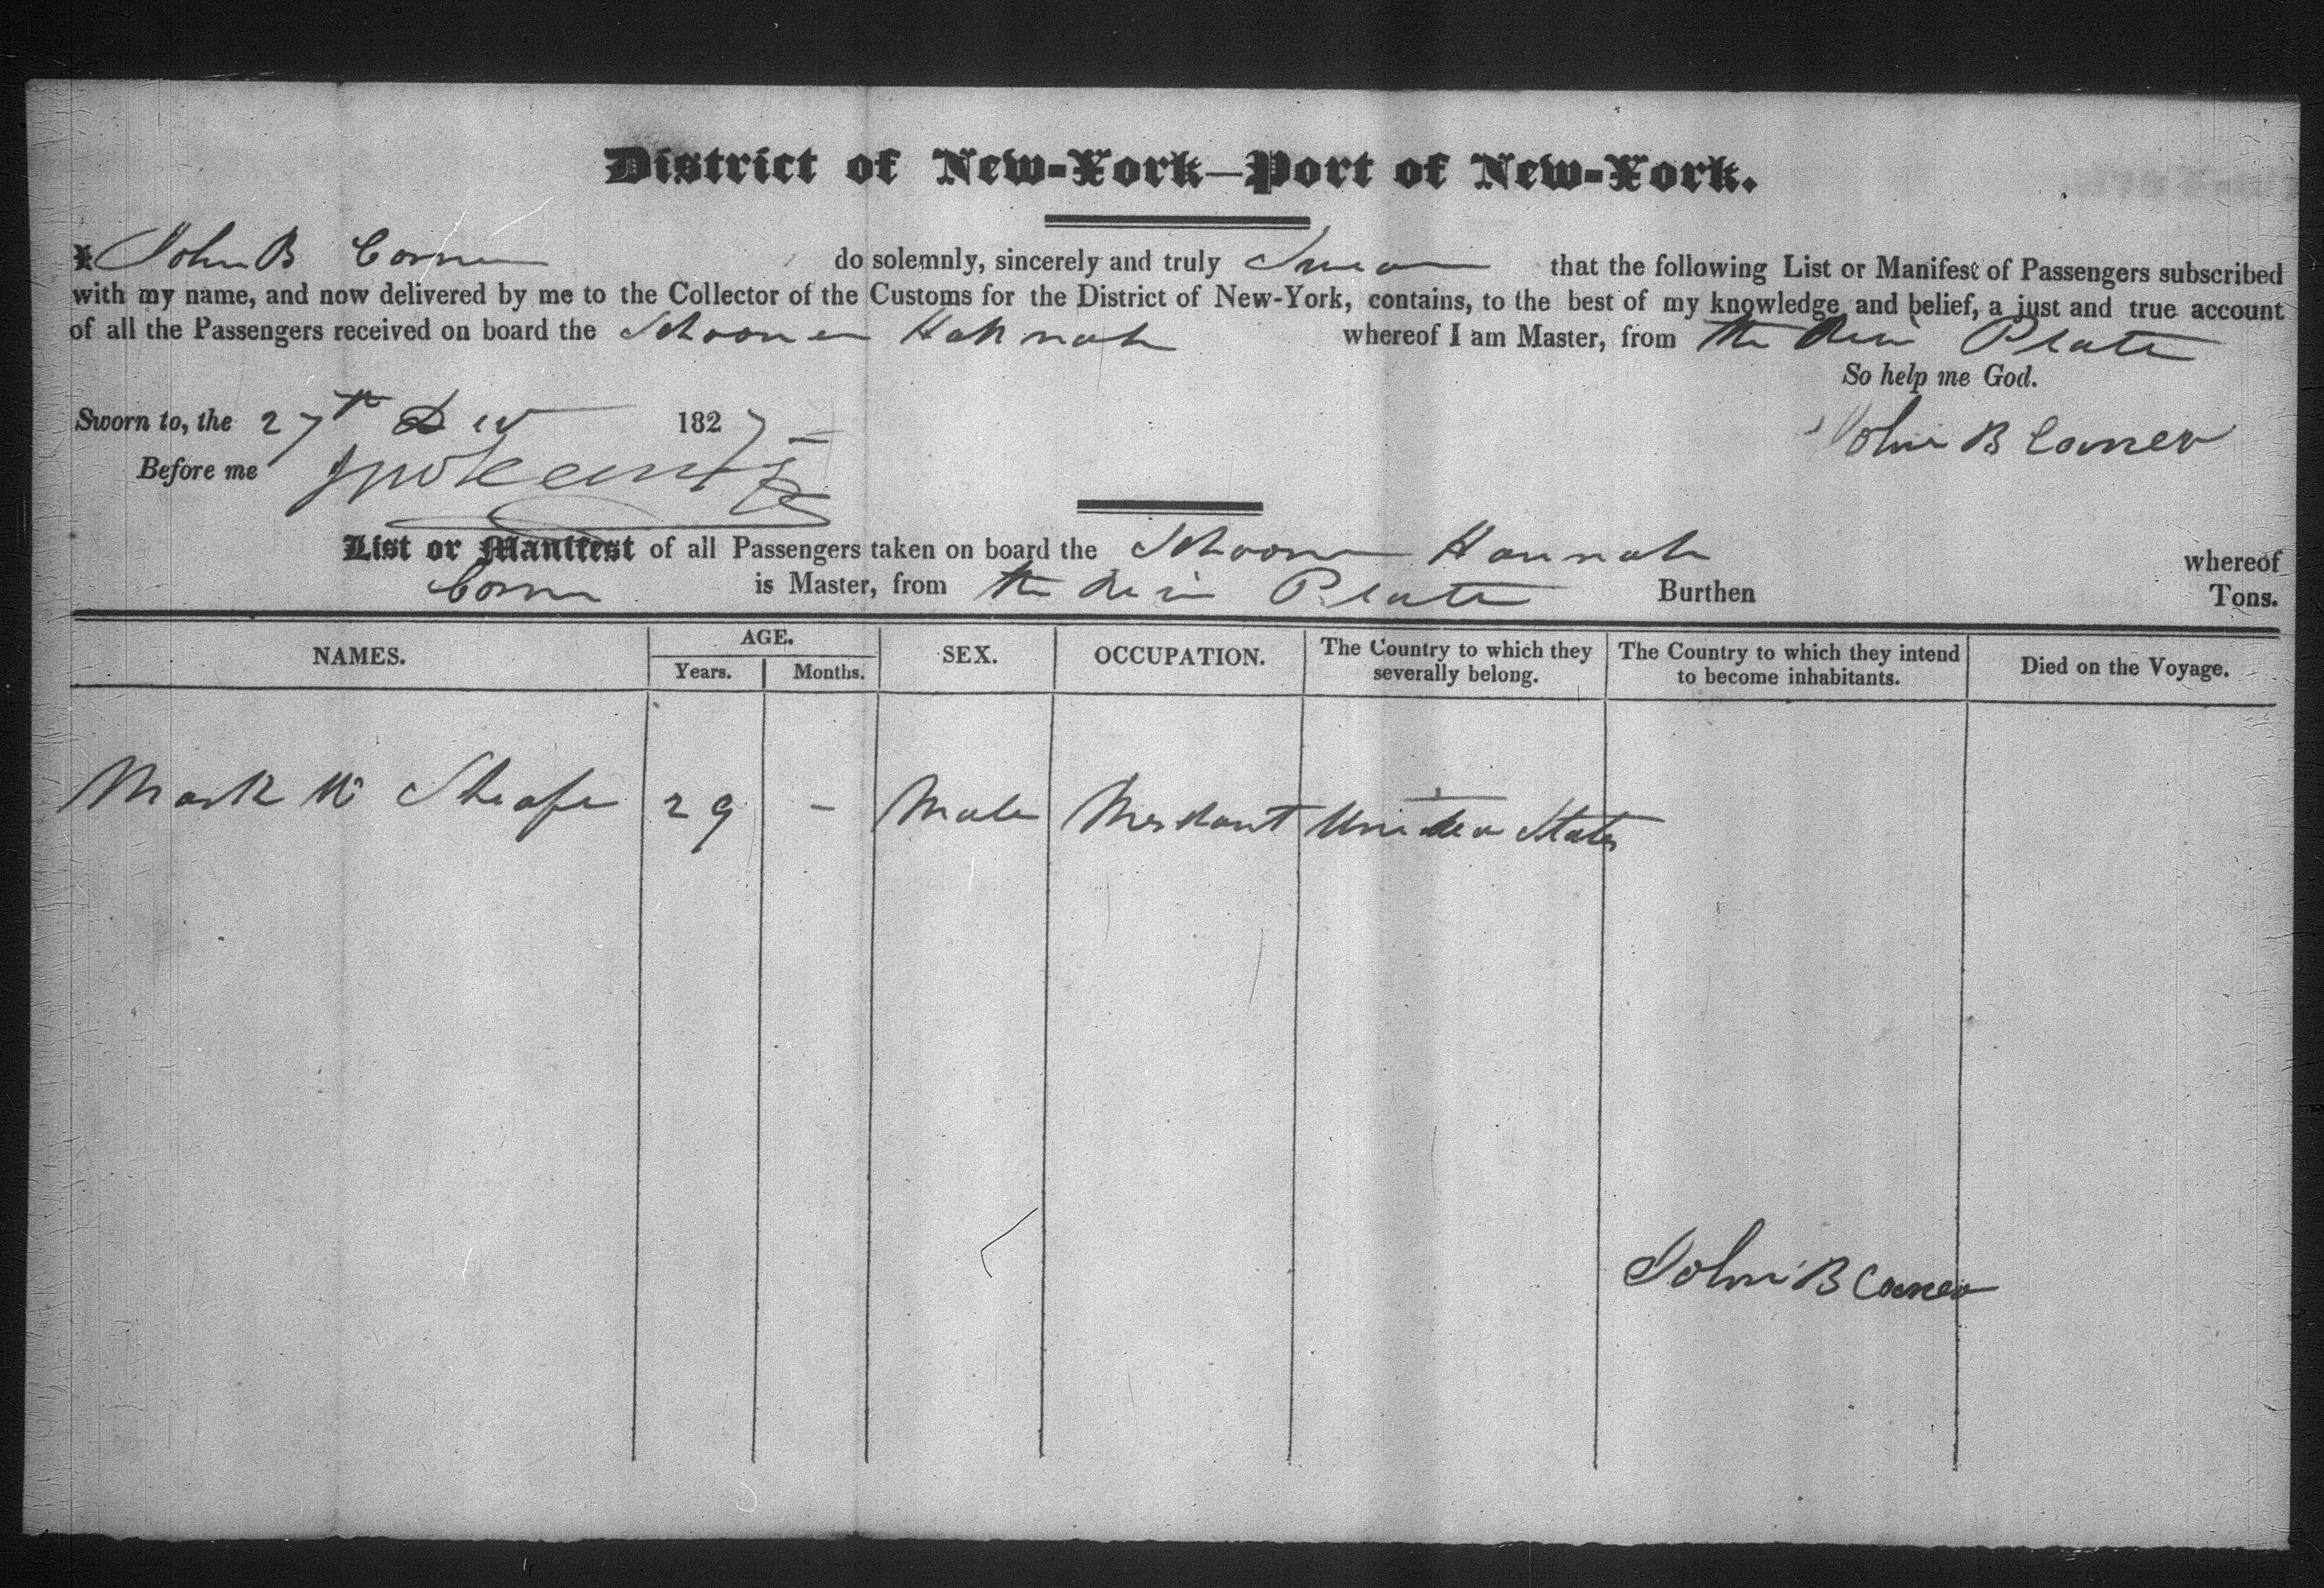 District of New-York—Port of New-York.
I John B Corner do solemnly, sincerely and truly Swear that the following List or Manifest of Passengers subscribed
with my name, and now delivered by me to the Collector of the Customs for the District of New-York, contains, to the best of my knowledge and belief, a just and true account
of all the Passengers received on board the Schooner Hannah whereof I am Master, from the River Plate
So help me God.
Sworn to, the 27th 1827 John B Corner
Before me
List or Manifest of all Passengers taken on board the Schooner Hannah whereof
Corner is Master, from the River Plate Burthen Tons.
NAMES. AGE. Years. Months. SEX. OCCUPATION. The Country to which they severally belong. The Country to which they intend to become inhabitants. Died on the Voyage.
Mark W Sheafe 29 - Male Merchant United States
John B Corner